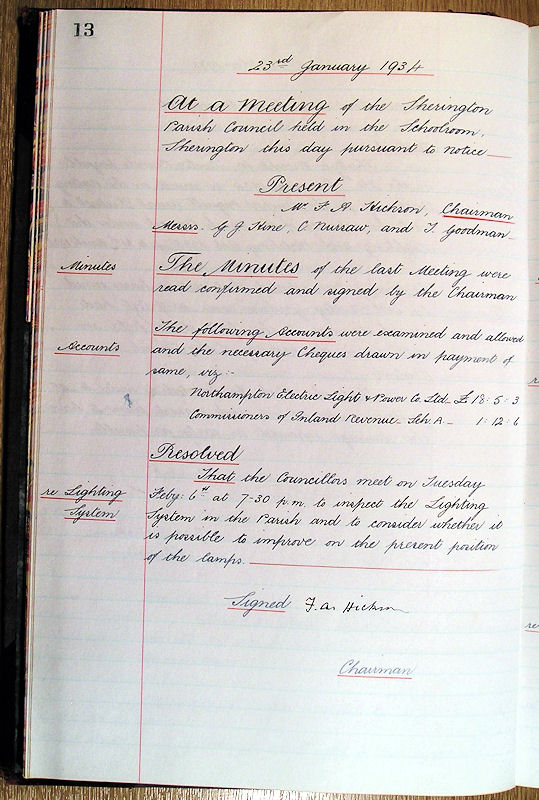 13
23rd January 1934
At a Meeting of the Sherington
Parish Council held in the Schoolroom,
Sherington this day pursuant to notice
Present
Mr F. A. Hickson, Chairman
Messrs. G J Hine, C. Nursaw, and T. Goodman
Minutes
The Minutes of the last Meeting were
read confirmed and signed by the Chairman
Accounts
The following Accounts were examined and allowed
and the necessary Cheques drawn in payment of
same, viz :-
Northampton Electric Light & Power Co. Ltd. £18 : 5 : 3
Commissioners of Inland Revenue Sch. A. 1 : 12 : 6
Resolved
re Lighting
System
That the Councillors meet on Tuesday
Feby: 6th at 7-30 p.m. to inspect the Lighting
System in the Parish and to consider whether it
is possible to improve on the present position
of the lamps.
Signed F. A. Hickson
Chairman